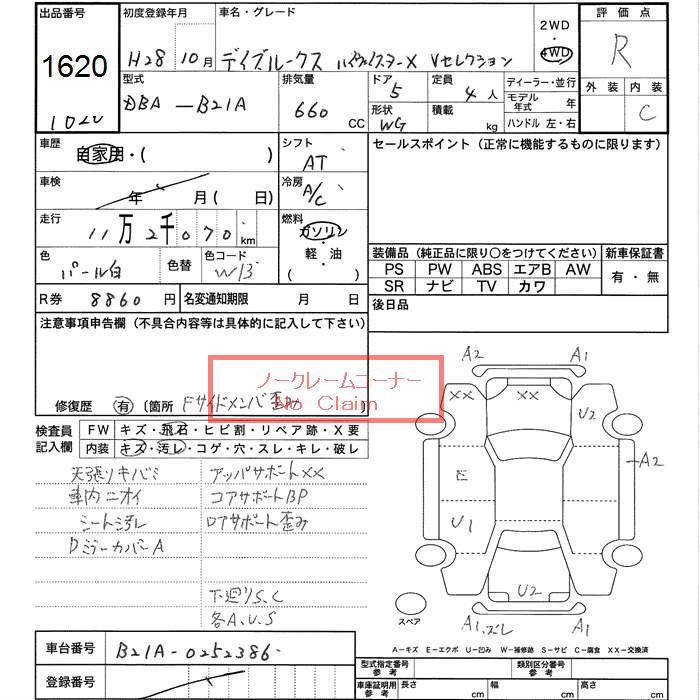 出品番号
1620
102U
初度登録年月
H28 10月
車名・グレード
デイズルークス ハイウェイスターX Vセレクション
2WD
4WD
評価点
R
外装 内装
C
型式
DBA-B21A
排気量
660 CC
ドア
5
定員
4人
形状
WG
積載
kg
ディーラー・並行
モデル年式 年
ハンドル 左・右
車歴
自家用・( )
シフト
AT
セールスポイント(正常に機能するものに限ります)
車検
年 月(日)
冷房
A/C
走行
11万2千070km
燃料
ガソリン
軽・油
( )
色
パール白
色替
色コード
W13
装備品(純正品に限り○をつけてください)
新車保証書
PS PW ABS エアB AW
有・無
SR ナビ TV カワ
R券 8860円
名変通知期限 月 日
後日品
注意事項申告欄(不具合内容等は具体的に記入して下さい)
ノークレームコーナー
No Claim
修復歴 有〔箇所 Fサイドメンバ歪み
検査員記入欄
FW キズ・飛石・ヒビ割・リペア跡・X要
内装 キズ・汚レ・コゲ・穴・スレ・キレ・破レ
天張りキバミ
アッパサポートXX
車内ニオイ
コアサポートBP
シート汚レ
ロアサポート歪み
DミラーカバーA
下廻りS.C
各A.U.S
A2 A1
XX XX
U2
E
A2
U1
U2
A1.ズレ A1
スペア
A-キズ E-エクボ U-凹み W-補修跡 S-サビ C-腐食 XX-交換済
車台番号
B21A-0252386
登録番号
型式指定番号 参考
類別区分番号 参考
車庫証明用 参考
長さ cm
幅 cm
高さ cm